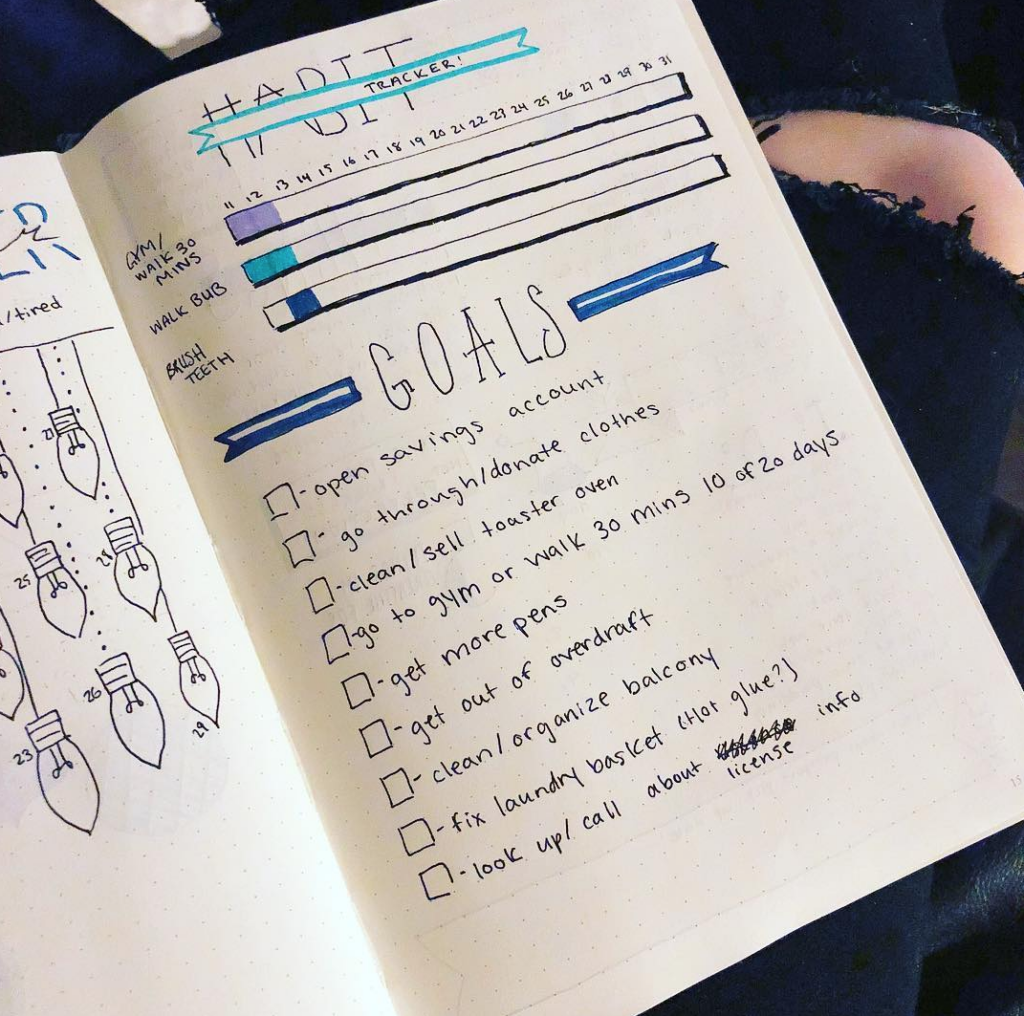 /tired
21
25
28
26
29
23
HABIT
TRACKER!
11 12 13 14 15 16 17 18 19 20 21 22 23 24 25 26 27 28 29 30 31
GYM/
WALK 30
MINS
WALK BUB
BRUSH
TEETH
GOALS
- open savings account
- go through/donate clothes
- clean/sell toaster oven
- go to gym or walk 30 mins 10 of 20 days
- get more pens
- get out of overdraft
- clean/organize balcony
- fix laundry basket (Hot glue?)
- look up/call about license info